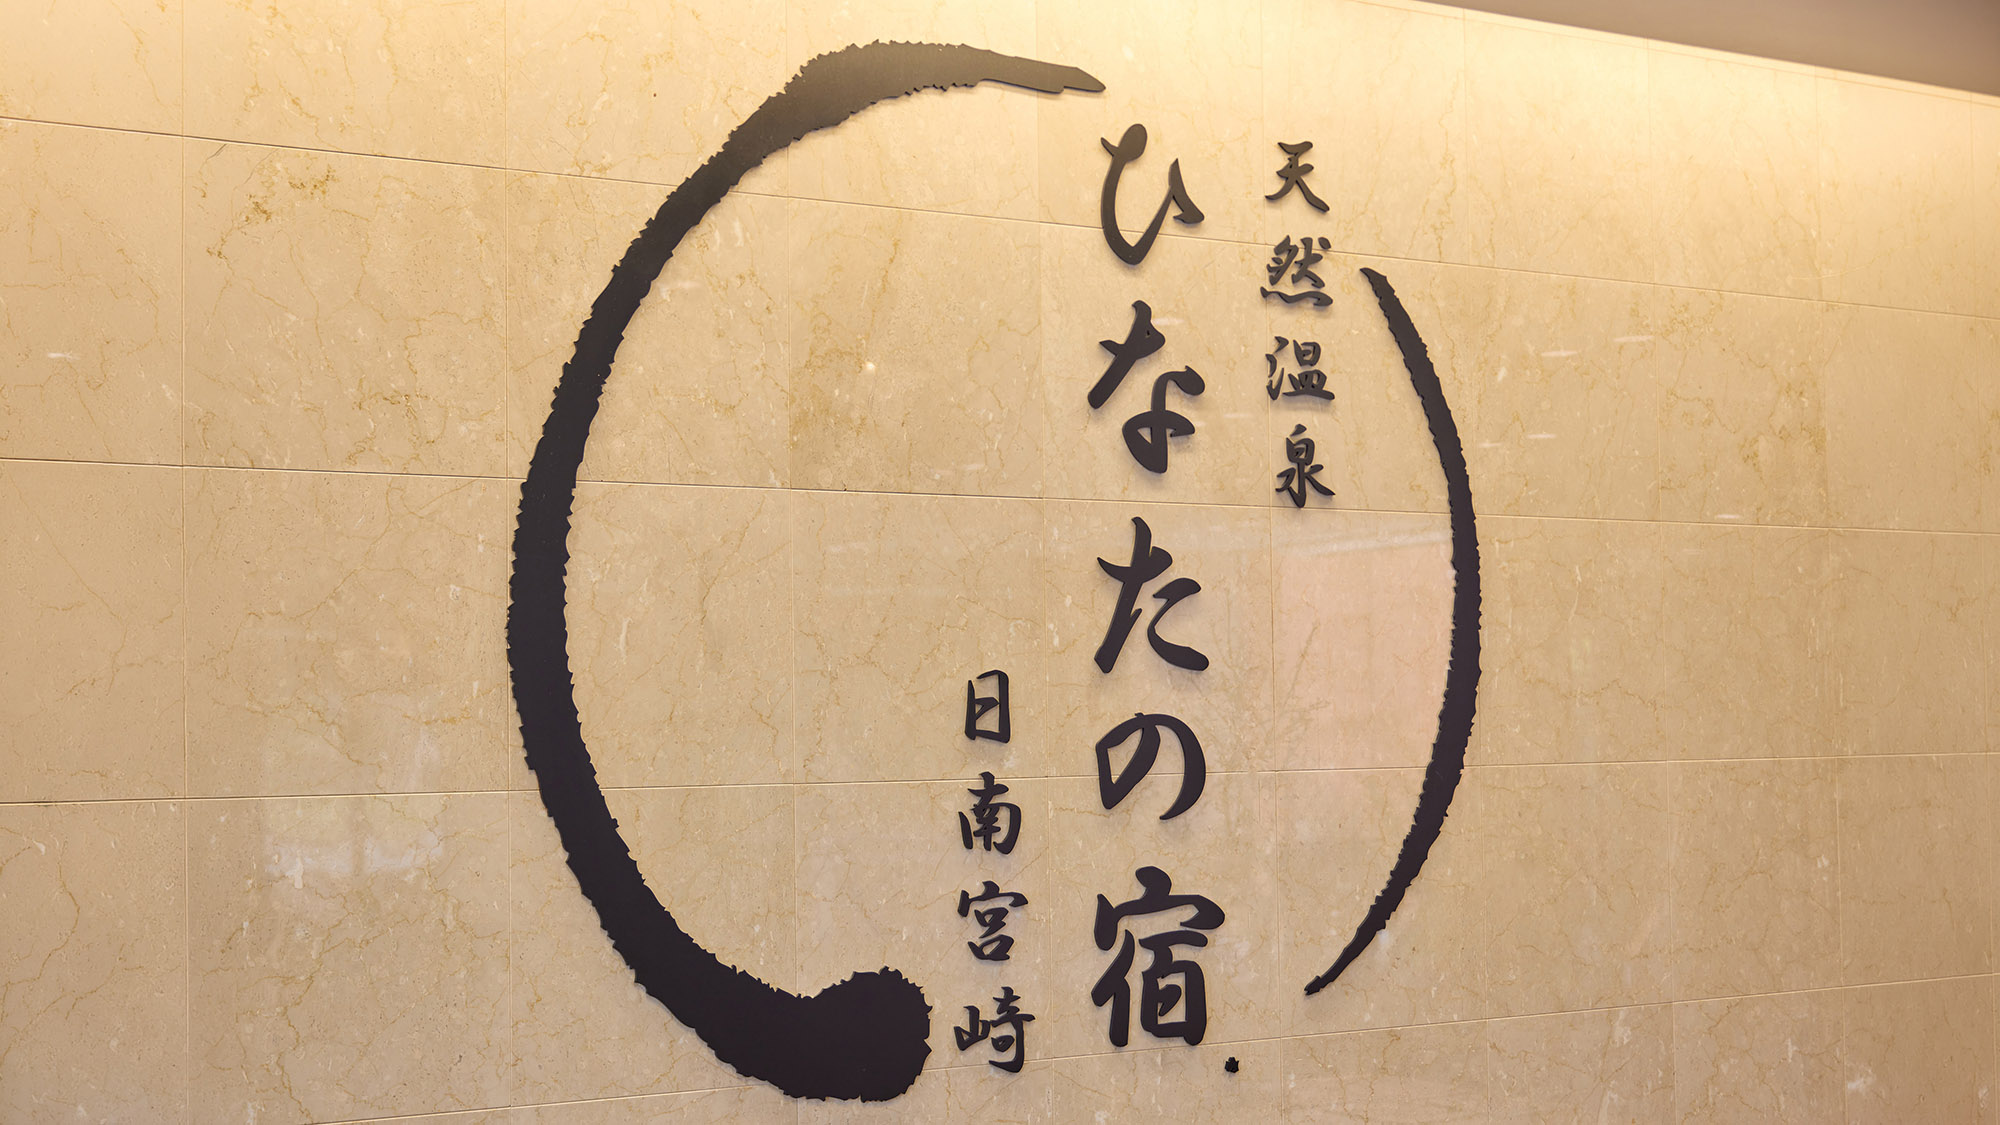 天然温泉
ひなたの宿.
日南宮崎